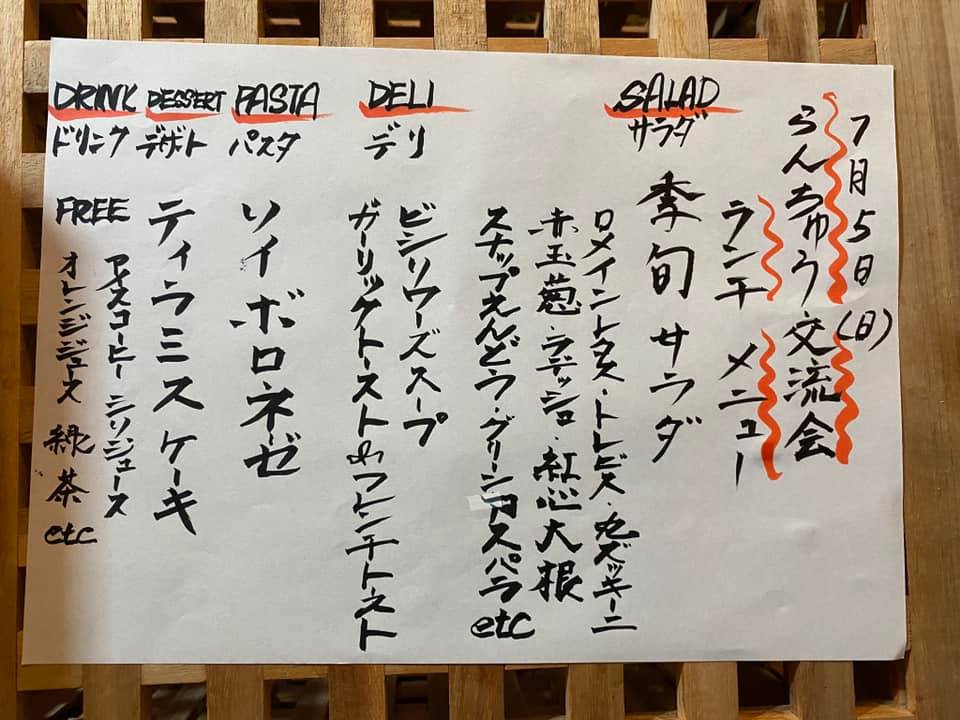 7月5日(日)
らんちゅう交流会
ランチメニュー
SALAD
サラダ
季旬サラダ
ロメインレタス・トレビス・丸ズッキーニ
赤玉葱・ラディッシュ・紅心大根
スナップえんどう・グリーンアスパラ
etc
DELI
デリ
ビシソワーズスープ
ガーリックトーストorフレンチトースト
PASTA
パスタ
ソイボロネーゼ
DESSERT
デザート
ティラミスケーキ
DRINK
ドリンク
FREE
アイスコーヒー シソジュース
オレンジジュース 緑茶
etc